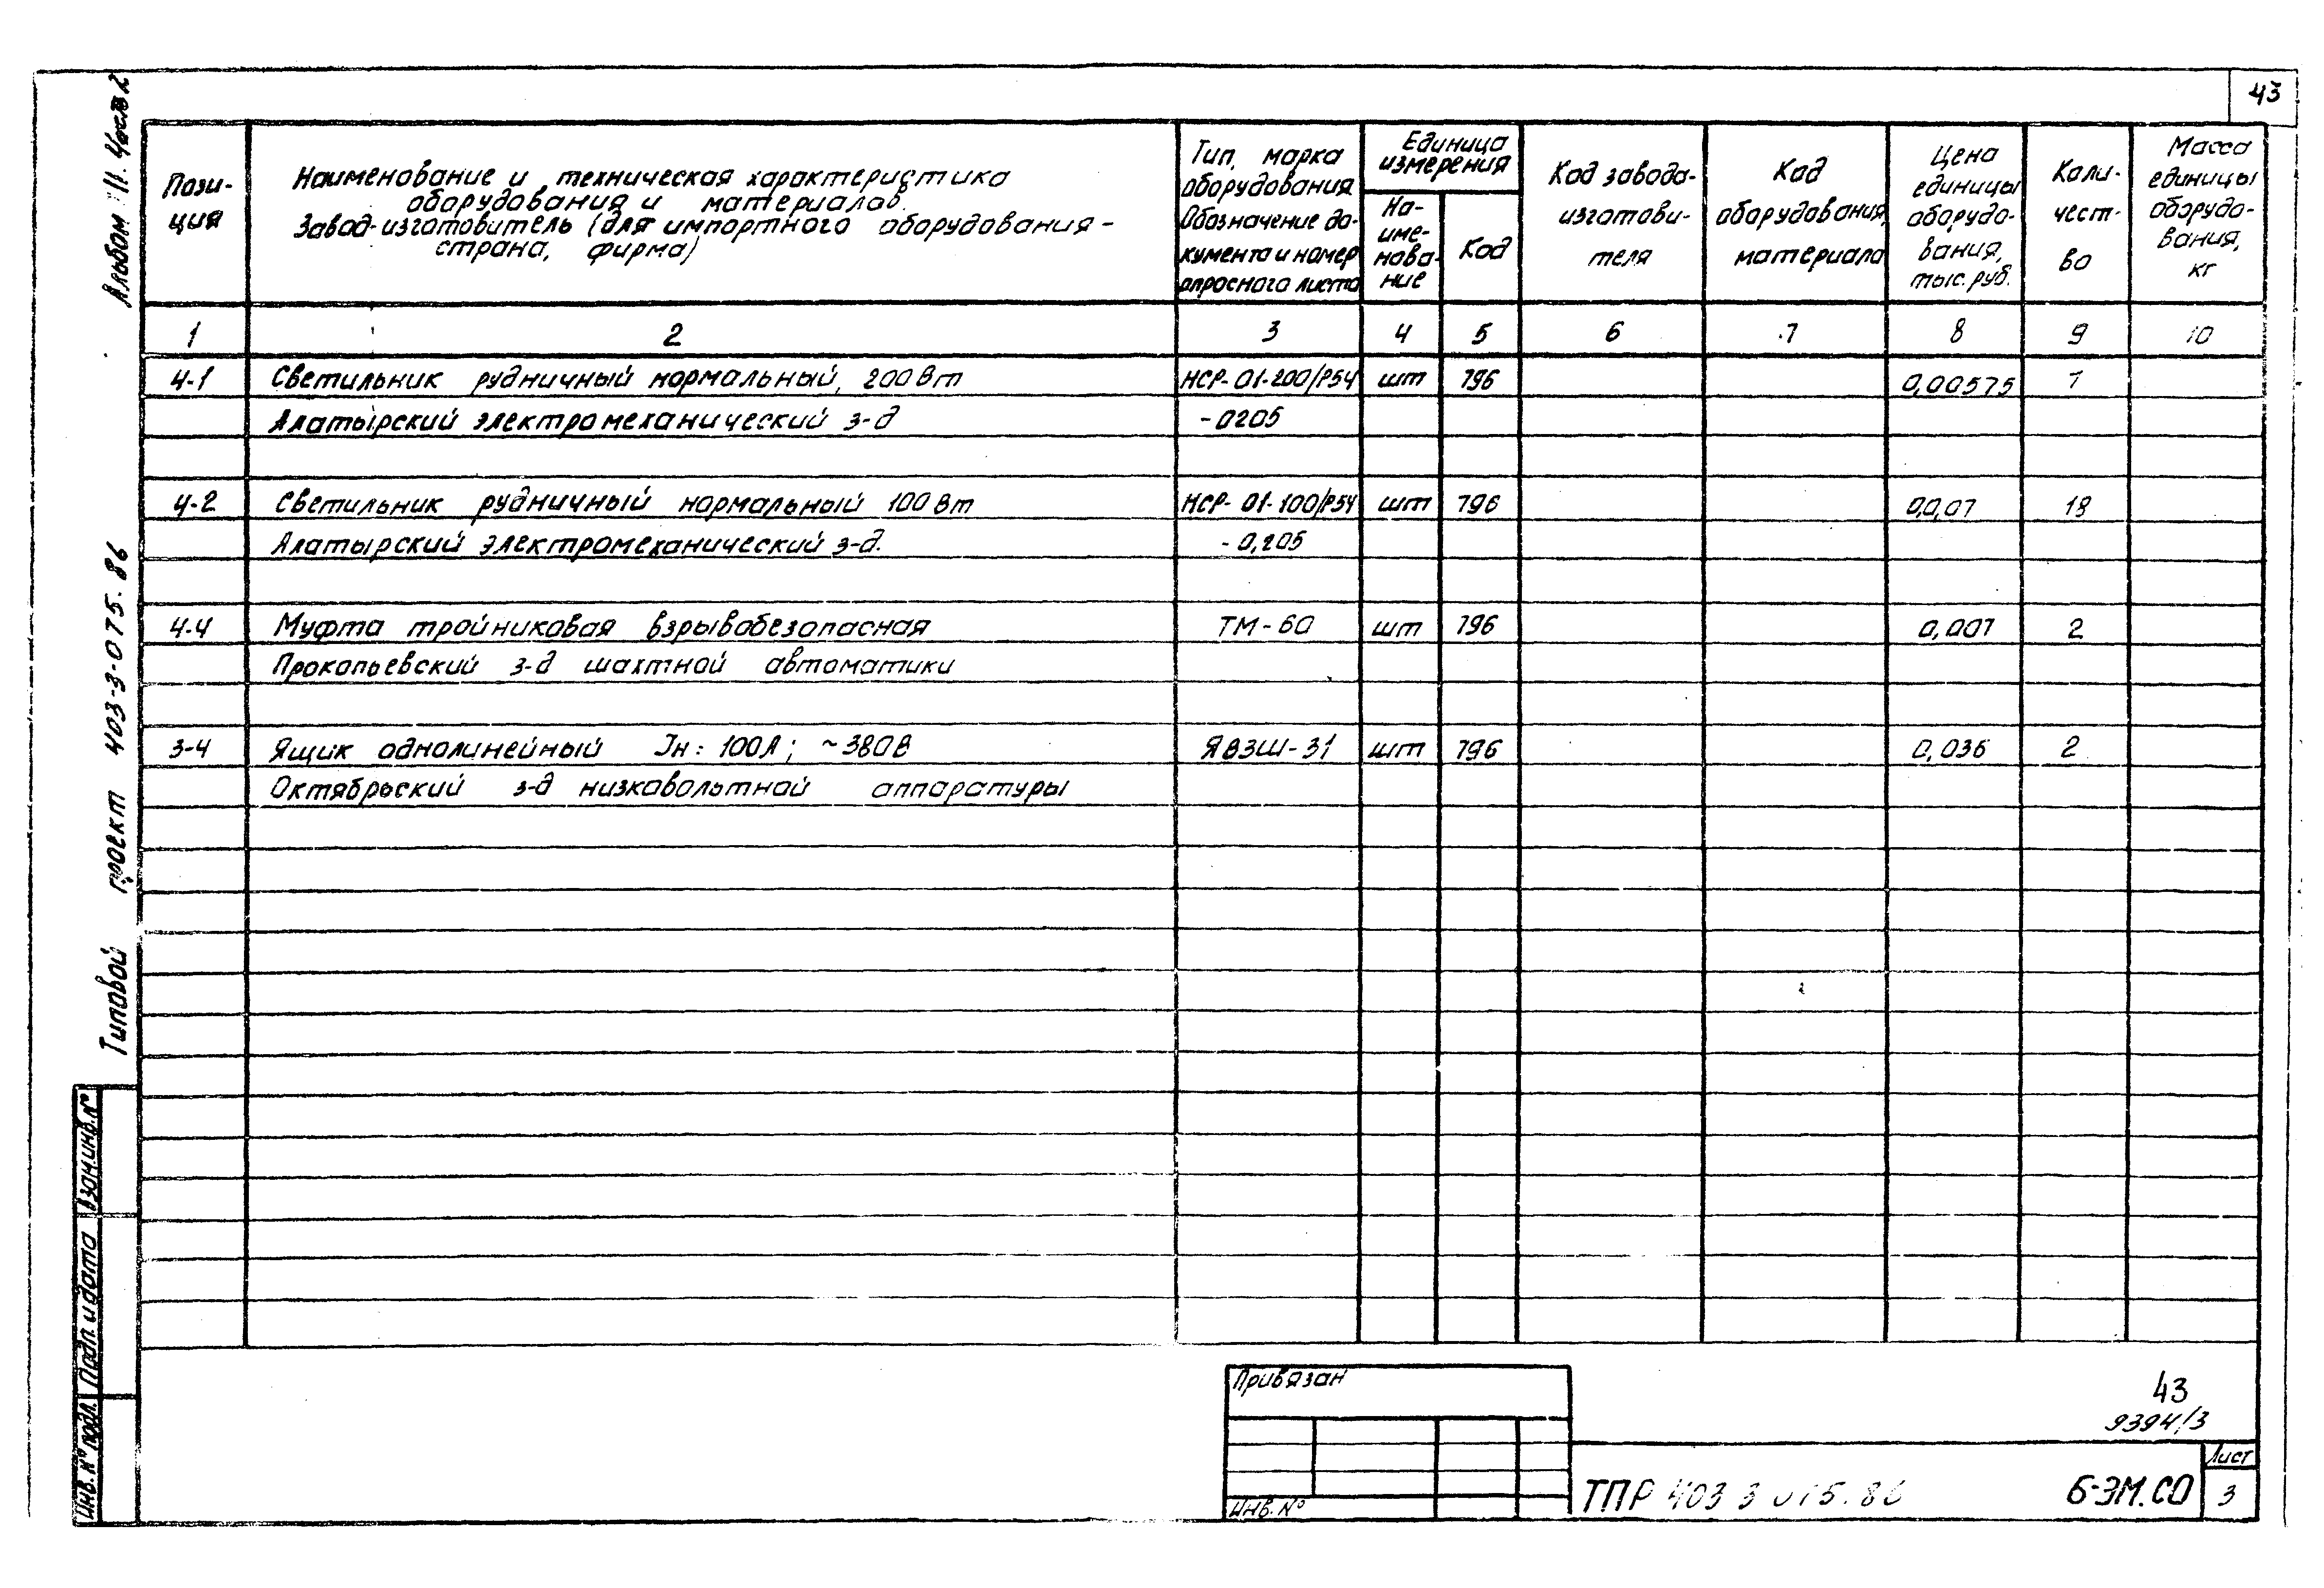 43
Альбом III. Часть 2
Типовой проект 403-3-075.86
Пози-
ция
Наименование и техническая характеристика
оборудования и материалов.
Завод-изготовитель (для импортного оборудования -
страна, фирма)
Тип, марка
оборудования
Обозначение до-
кумента и номер
опросного листа
Единица
измерения
На-
име-
нова-
ние
Код
Код завода-
изготови-
теля
Код
оборудования,
материала
Цена
единицы
оборудо-
вания,
тыс. руб.
Коли-
чест-
во
Масса
единицы
оборудо-
вания,
кг
1 2 3 4 5 6 7 8 9 10
4-1 Светильник рудничный нормальный, 200Вт НСР-01-200/Р54 шт 796 0,00575 1
Алатырский электромеханический з-д -0205
4-2 Светильник рудничный нормальный 100Вт НСР-01-100/Р54 шт 796 18
Алатырский электромеханический з-д. -0,205
4-4 Муфта тройниковая взрывобезопасная ТМ-60 шт 796 0,007 2
Прокопьевский з-д шахтной автоматики
3-4 Ящик однолинейный Iн= 100А; ~380В ЯВЗШ-31 шт 796 0,036 2
Октябрьский з-д низковольтной аппаратуры
Взам.инв.№
Подп. и дата
Инв. № подл.
Привязан
Инв. №
43
9394/3
ТПР 403 3 075.86 6-ЭМ.СО
Лист
3